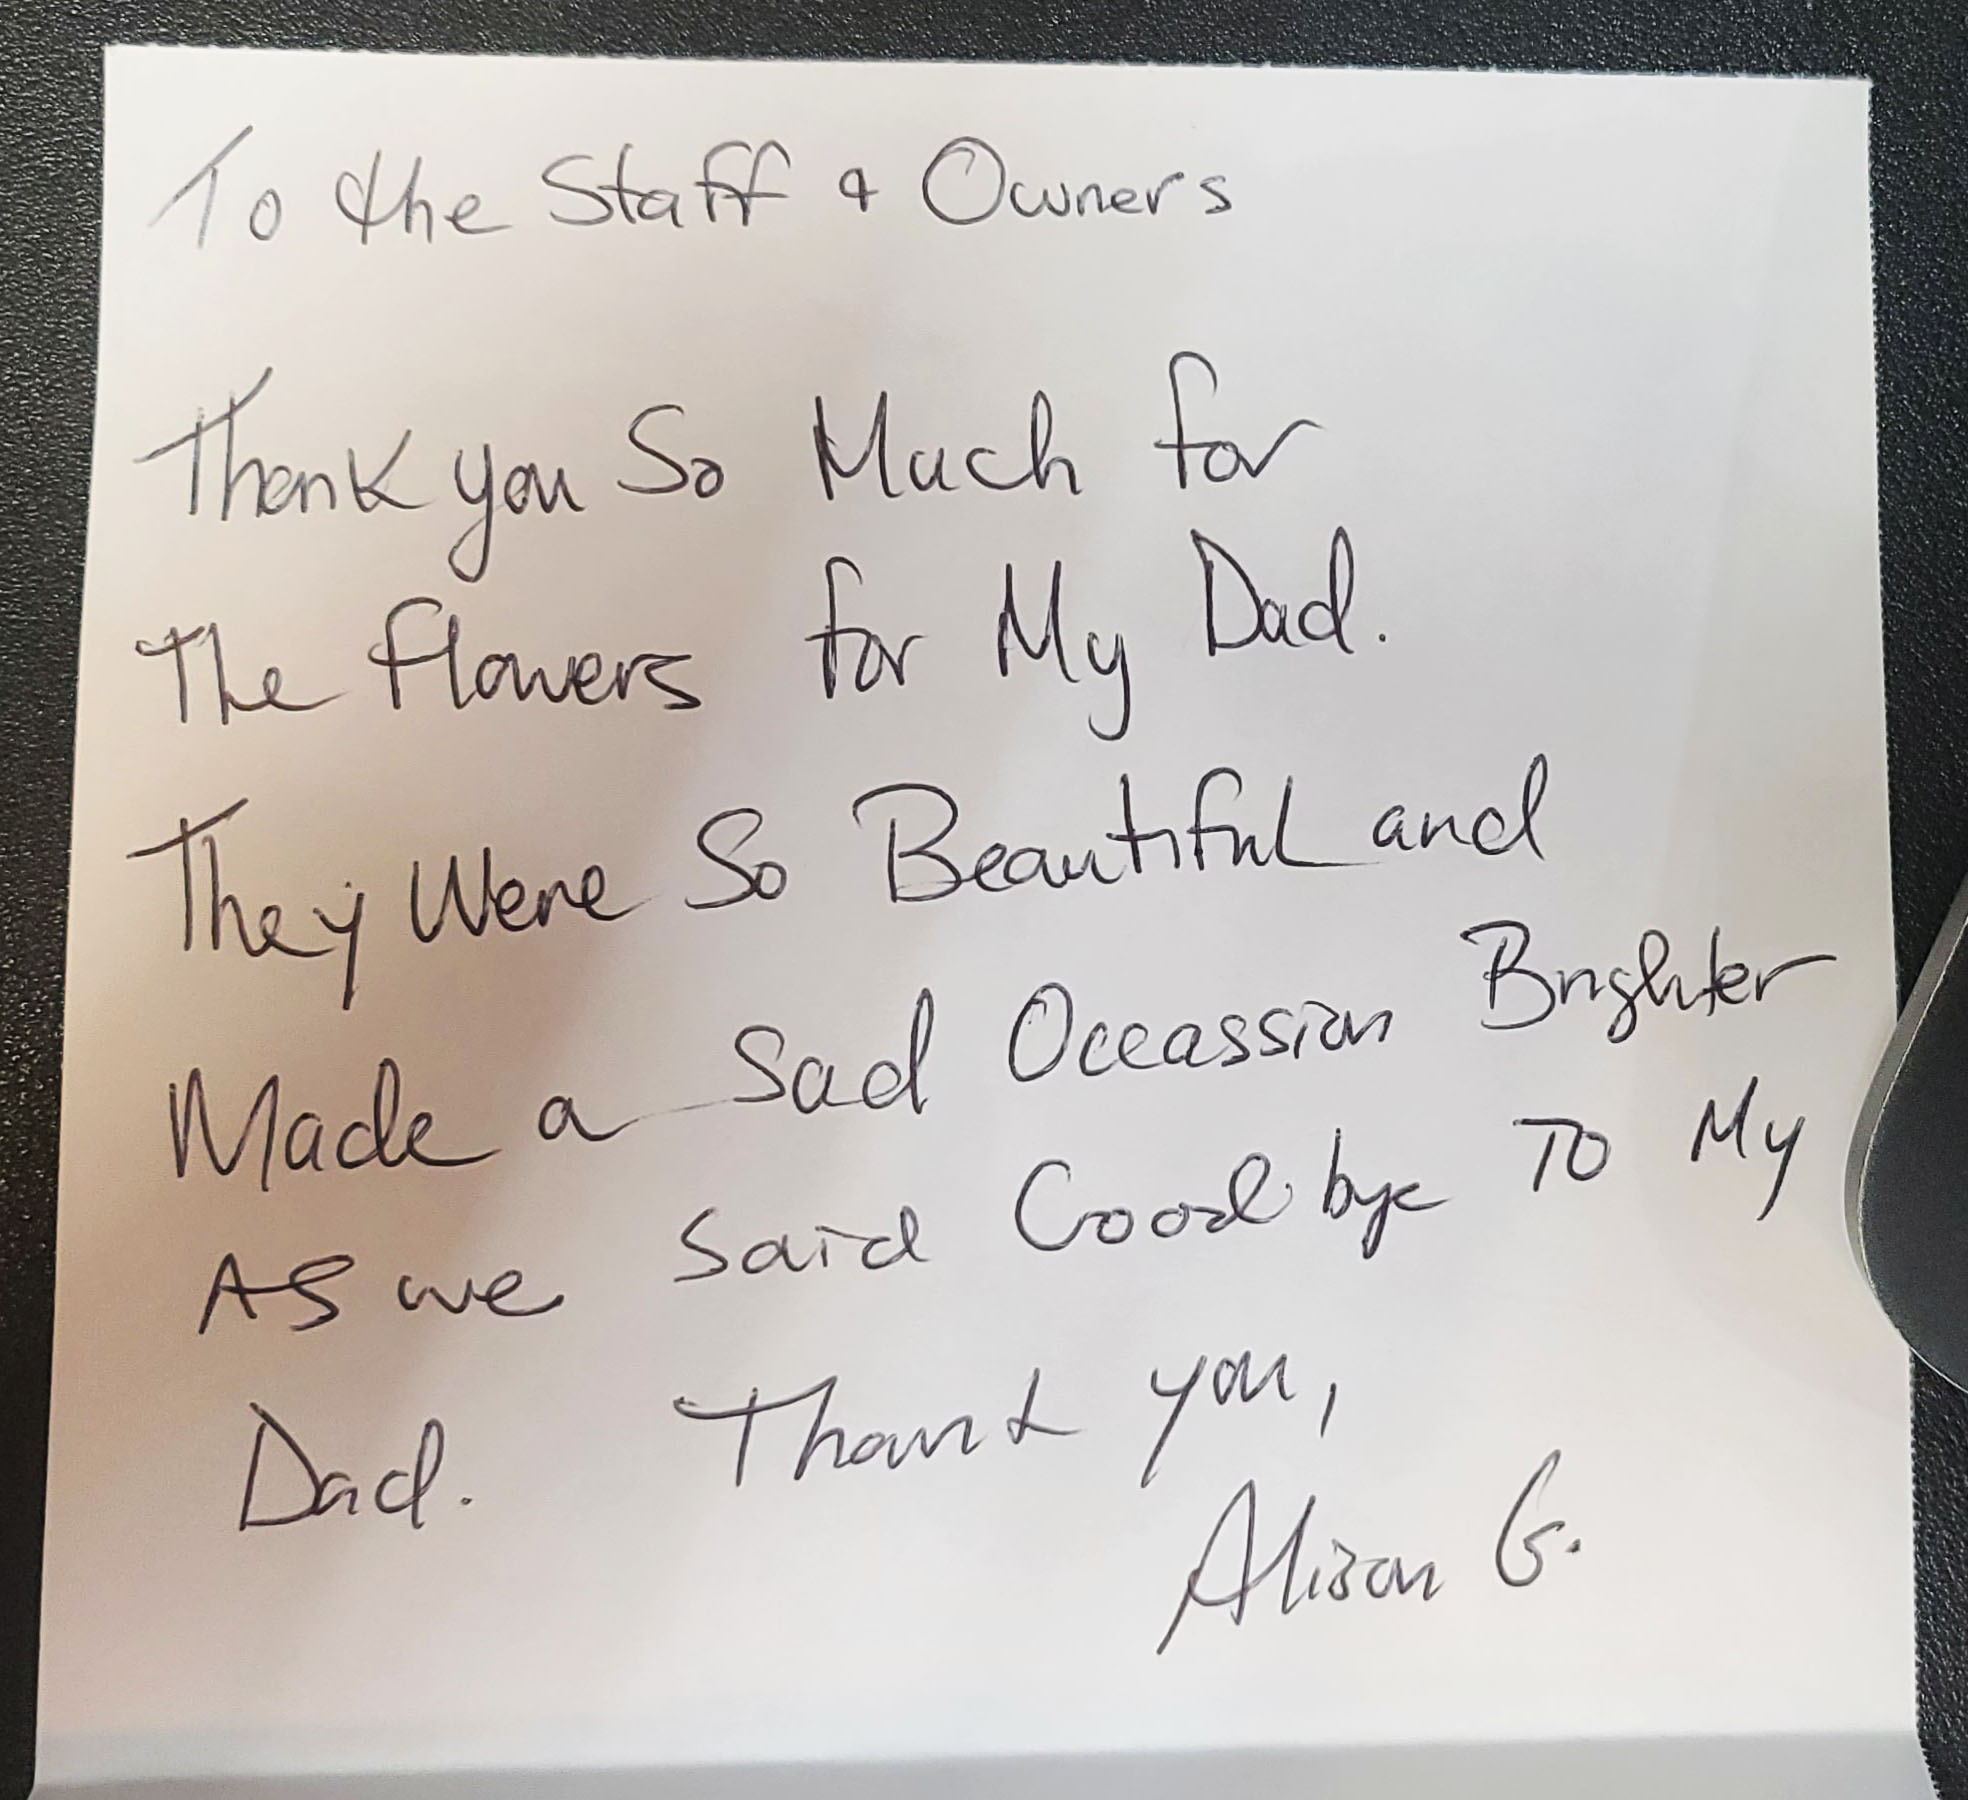 To the Staff & Owners
Thank you So Much for
The flowers for My Dad.
They Were So Beautiful and
Made a Sad Occassion Brighter
As we said Goodbye To My
Dad. Thank you,
Alison G.